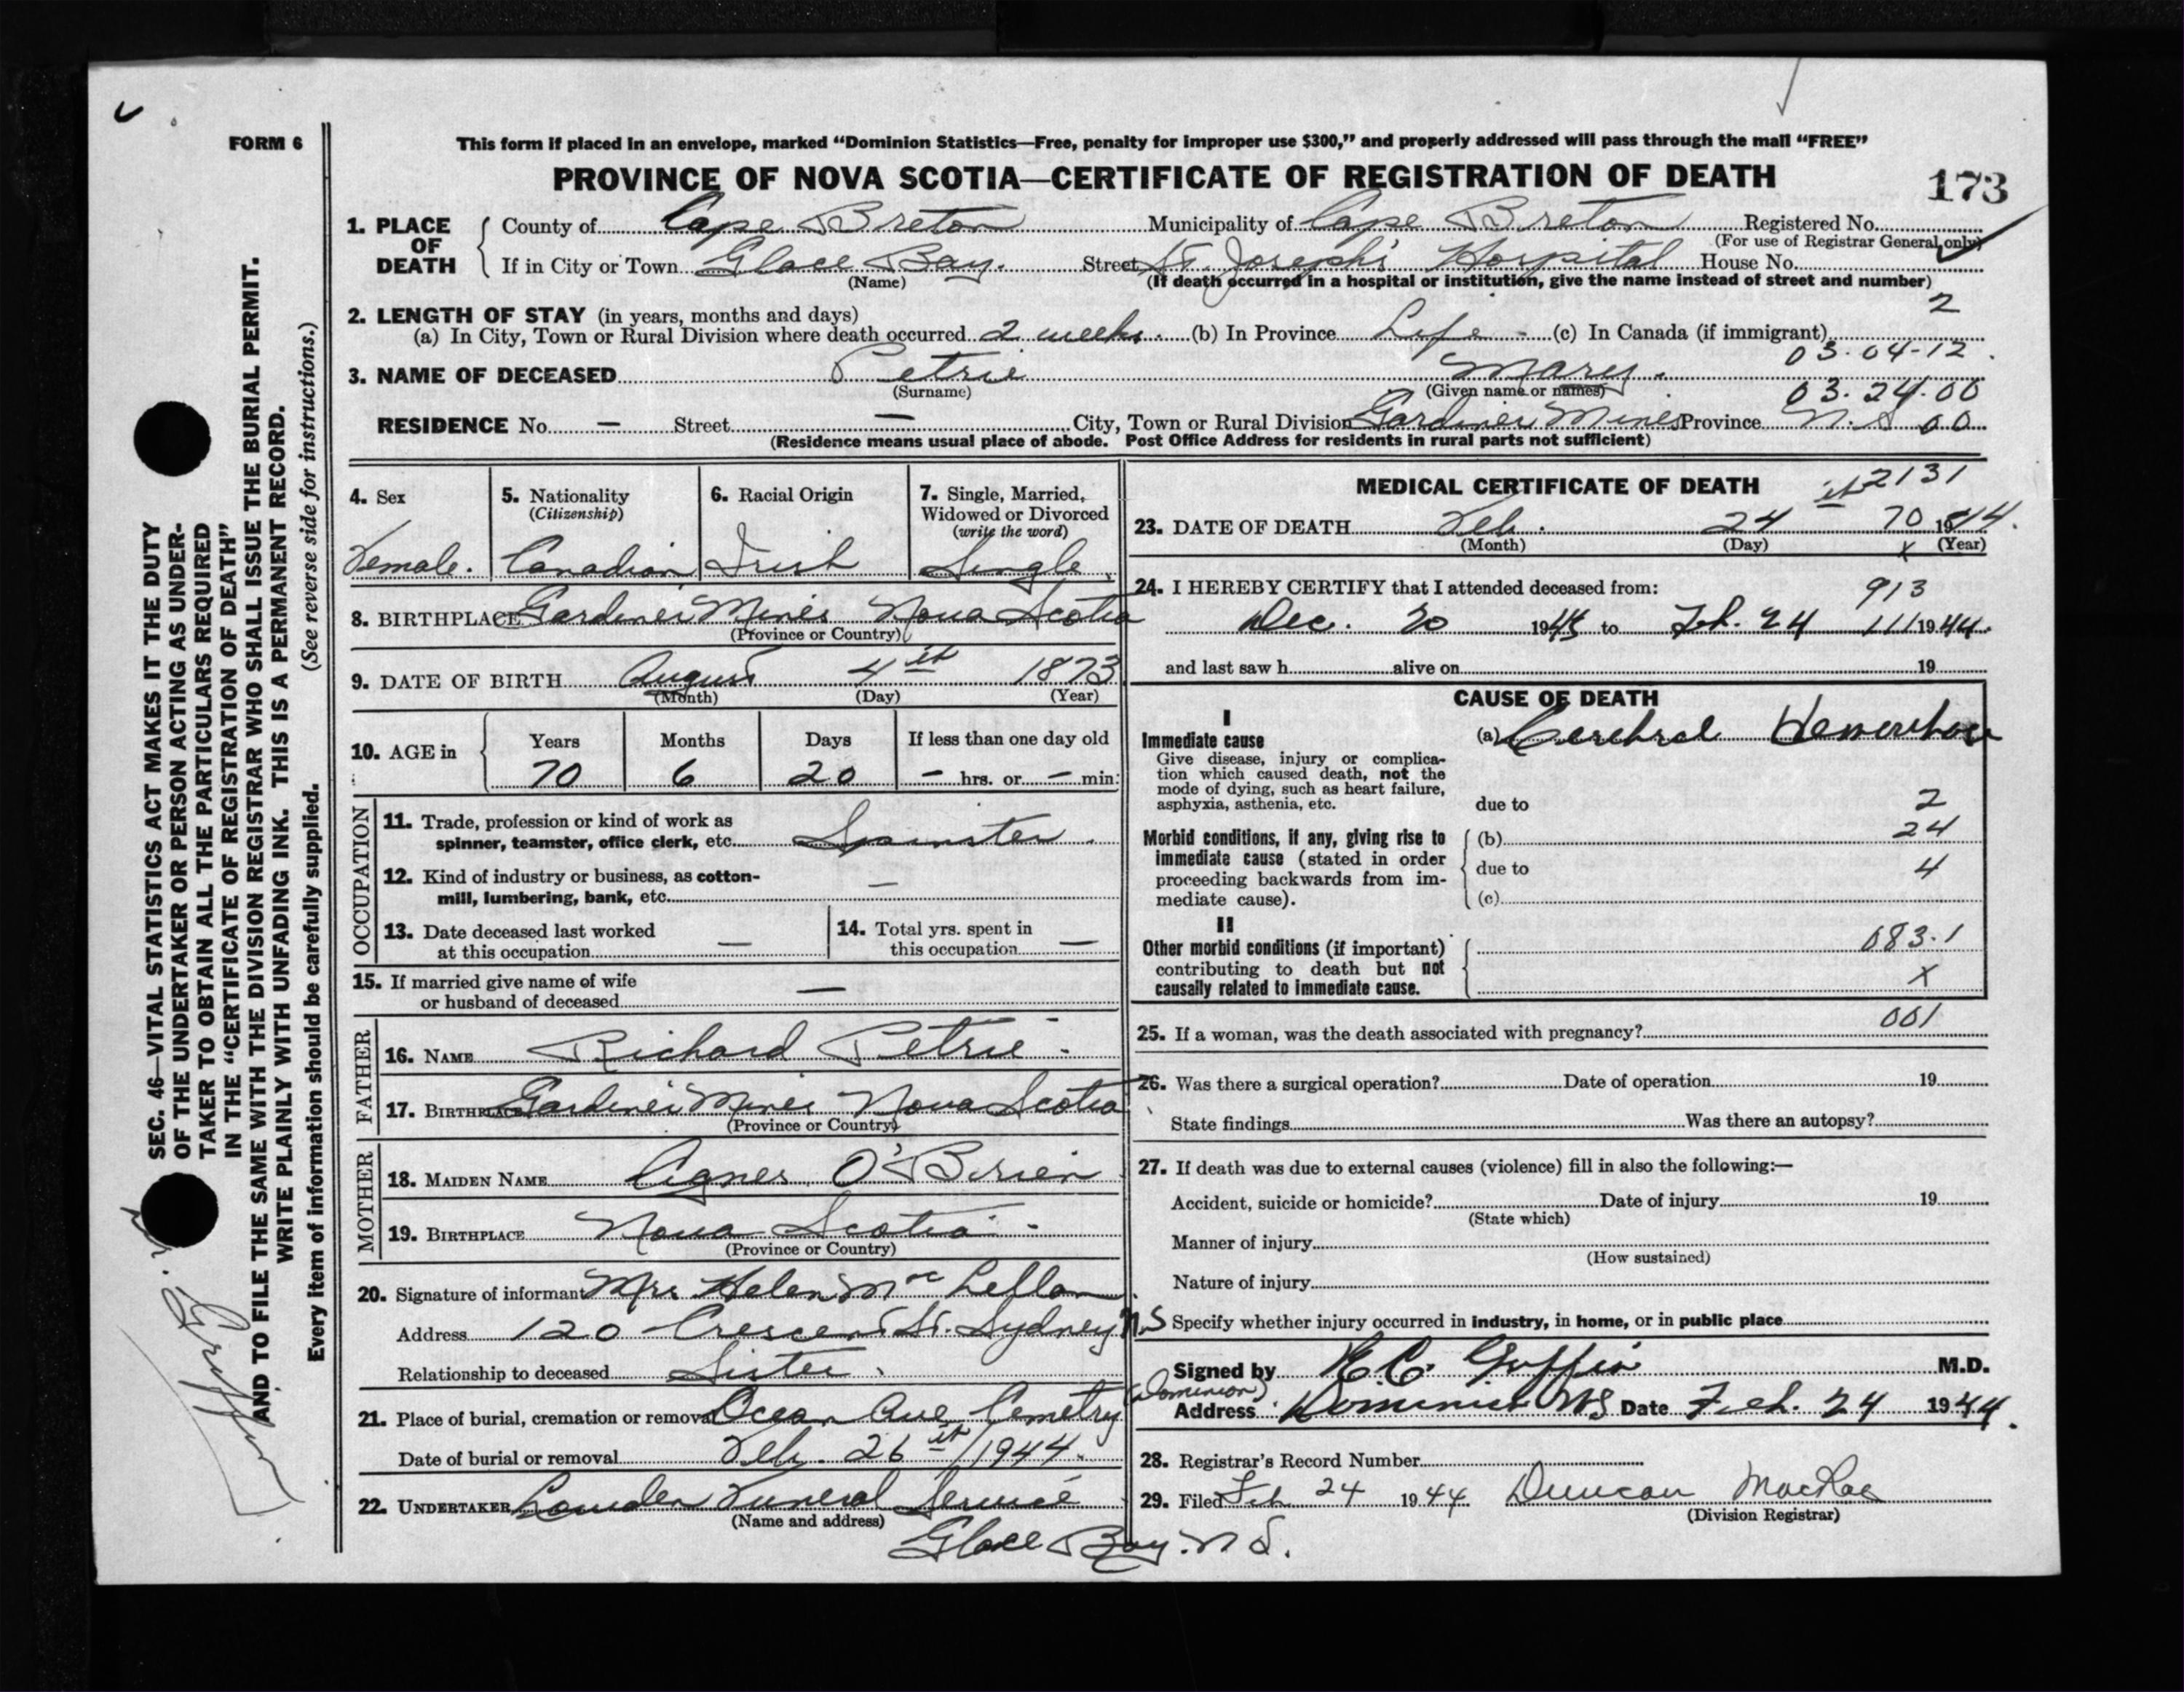 FORM 6
This form if placed in an envelope, marked “Dominion Statistics—Free, penalty for improper use $300,” and properly addressed will pass through the mail “FREE”
PROVINCE OF NOVA SCOTIA—CERTIFICATE OF REGISTRATION OF DEATH
173
1. PLACE OF DEATH
County of Cape Breton Municipality of Cape Breton Registered No.
(For use of Registrar General only)
If in City or Town Glace Bay. Street St. Joseph's Hospital House No.
(Name) (If death occurred in a hospital or institution, give the name instead of street and number)
2. LENGTH OF STAY (in years, months and days) 2
(a) In City, Town or Rural Division where death occurred 2 weeks. (b) In Province Life - (c) In Canada (if immigrant)
03.04-12.
3. NAME OF DECEASED Petrie Mary.
(Surname) (Given name or names) 03.24.00
RESIDENCE No. — Street — City, Town or Rural Division Gardiner Mines Province N.S 00
(Residence means usual place of abode. Post Office Address for residents in rural parts not sufficient)
4. Sex
Female.
5. Nationality
(Citizenship)
Canadian
6. Racial Origin
Irish
7. Single, Married,
Widowed or Divorced
(write the word)
Single
8. BIRTHPLACE Gardiner Mines Nova Scotia
(Province or Country)
9. DATE OF BIRTH August 4th 1873
(Month) (Day) (Year)
10. AGE in
Years Months Days If less than one day old
70 6 20 — hrs. or — min.
OCCUPATION
11. Trade, profession or kind of work as
spinner, teamster, office clerk, etc. Spinster.
12. Kind of industry or business, as cotton-
mill, lumbering, bank, etc. —
13. Date deceased last worked
at this occupation —
14. Total yrs. spent in
this occupation —
15. If married give name of wife
or husband of deceased —
FATHER
16. NAME Richard Petrie -
17. BIRTHPLACE Gardiner Mines Nova Scotia
(Province or Country)
MOTHER
18. MAIDEN NAME Agnes O'Brien
19. BIRTHPLACE Nova Scotia -
(Province or Country)
20. Signature of informant Mrs Helen McLellan
Address 120 Crescent St. Sydney N.S
Relationship to deceased Sister.
21. Place of burial, cremation or removal Ocean Ave. Cemetry
Date of burial or removal Feb. 26th/1944.
22. UNDERTAKER Funeral Service
(Name and address)
Glace Bay. N S.
MEDICAL CERTIFICATE OF DEATH
2131
23. DATE OF DEATH Feb. 24th 70 1944.
(Month) (Day) x (Year)
24. I HEREBY CERTIFY that I attended deceased from: 913
Dec. 20 19 to Feb. 24 111 1944.
and last saw h alive on 19
CAUSE OF DEATH
I
Immediate cause
Give disease, injury or complica-
tion which caused death, not the
mode of dying, such as heart failure,
asphyxia, asthenia, etc.
(a) Cerebral
due to 2
Morbid conditions, if any, giving rise to
immediate cause (stated in order
proceeding backwards from im-
mediate cause).
(b) 24
due to 4
(c)
II
Other morbid conditions (if important)
contributing to death but not
causally related to immediate cause.
083.1
x
25. If a woman, was the death associated with pregnancy? 001
26. Was there a surgical operation? Date of operation 19
State findings Was there an autopsy?
27. If death was due to external causes (violence) fill in also the following:—
Accident, suicide or homicide? Date of injury 19
(State which)
Manner of injury
(How sustained)
Nature of injury
Specify whether injury occurred in industry, in home, or in public place
Signed by M.D.
(Dominion)
Address Dominion NS Date Feb. 24 1944.
28. Registrar's Record Number
29. Filed Feb 24 1944 Duncan MacRae
(Division Registrar)
SEC. 46—VITAL STATISTICS ACT MAKES IT THE DUTY
OF THE UNDERTAKER OR PERSON ACTING AS UNDER-
TAKER TO OBTAIN ALL THE PARTICULARS REQUIRED
IN THE “CERTIFICATE OF REGISTRATION OF DEATH”
AND TO FILE THE SAME WITH THE DIVISION REGISTRAR WHO SHALL ISSUE THE BURIAL PERMIT.
WRITE PLAINLY WITH UNFADING INK. THIS IS A PERMANENT RECORD.
Every item of information should be carefully supplied. (See reverse side for instructions.)